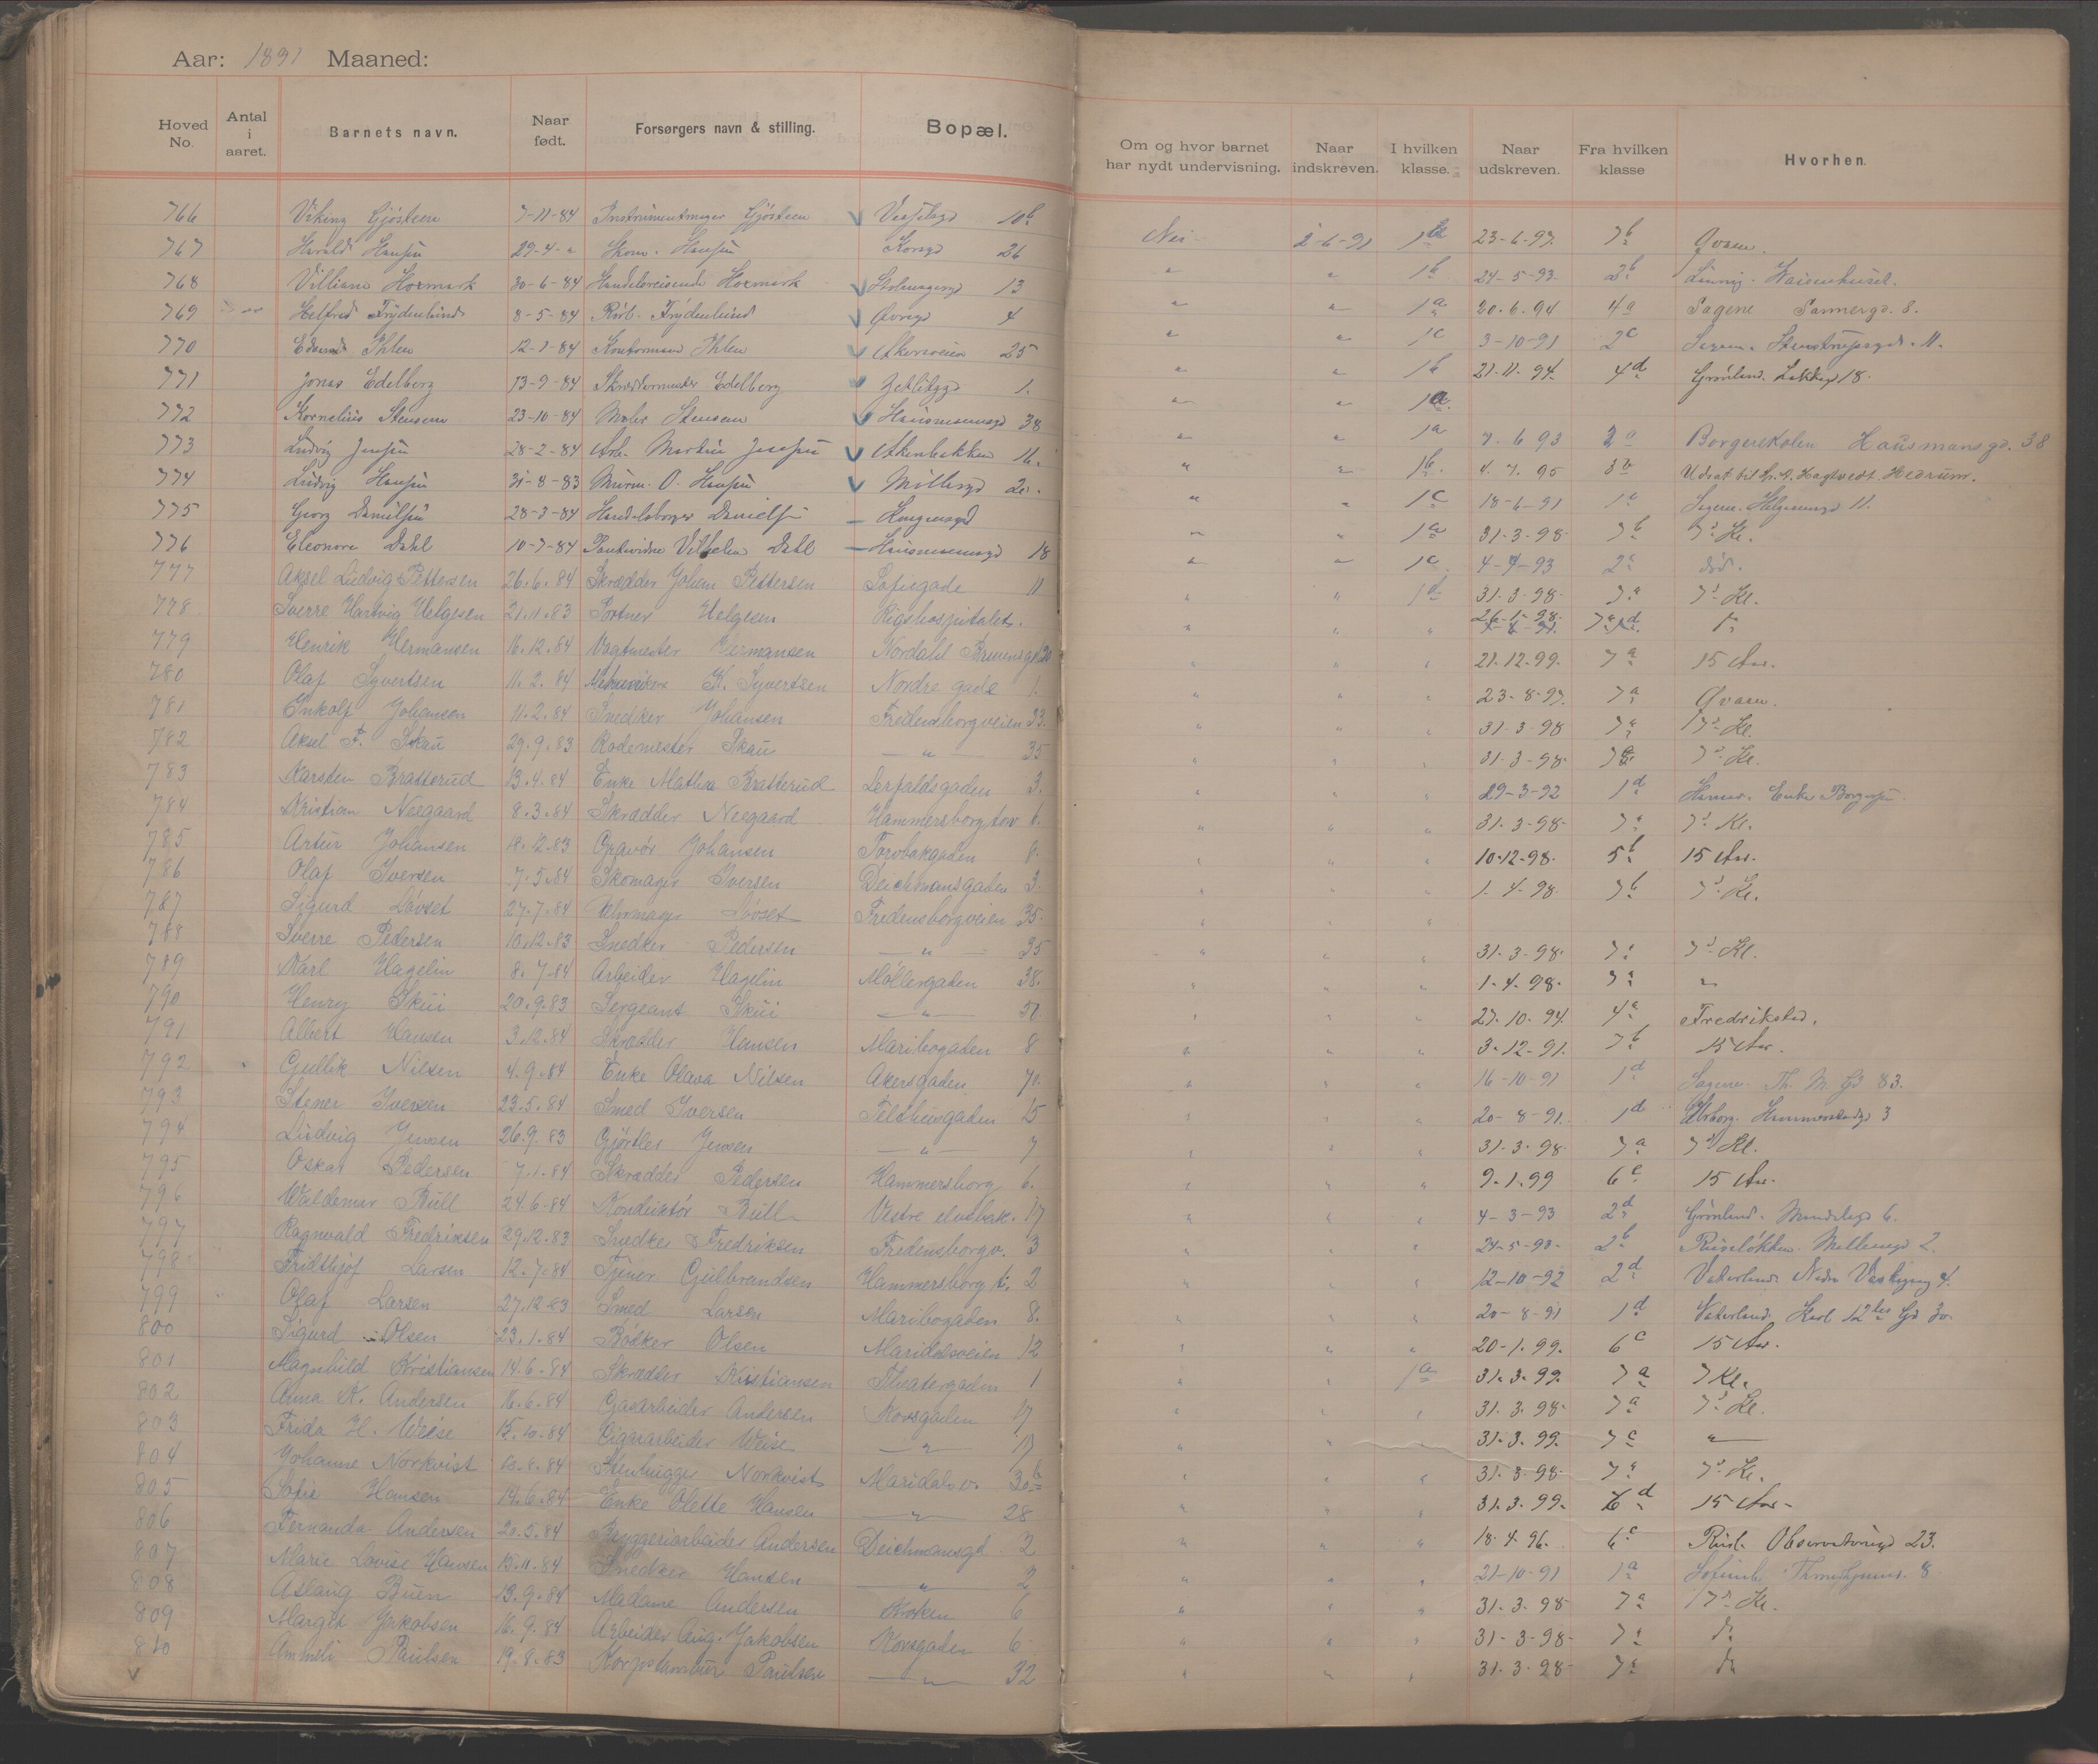 Aar: 1891 Maaned:
Hoved No. Antal i aaret. Barnets navn. Naar født. Forsørgers navn & stilling. Bopæl. Om og hvor barnet har nydt undervisning. Naar indskreven. I hvilken klasse. Naar udskreven. Fra hvilken klasse Hvorhen.
766 Viking Gjösteen 7-11-84 Instrumentmager Gjösteen 10b Nei 2-6-91 23-6-97. 7b Qvæn.
767 Harald Hansen 29-4-" Skom. Hansen Korsgd 26 " " 1b 24-5-93. 2b Waisenhuset.
768 Villiam Hormark 30-6-84 Handelsreisende Hormark 13 " " 1a 20.6.94 4a Sagene Sannergd. 8.
769 Helfred Frydenlund 8-5-84 Frydenlund Øvregd 4 " " 1c 3-10-91 2c Stenstrupsgd. 11.
770 Edvard Ihlen 12-1-84 Kontormand Ihlen Akersveien 25 " " 1b 21-11-94. 4d Grønland. 18.
771 Jonas Edelberg 13-9-84 Skræddermester Edelberg Zetlitzgd 1. " " 1a.
772 Kornelius Stensen 23-10-84 Maler Stensen Hausmannsgd 38 " " 1a 7.6 93 2a Borgerskolen Hausmansgd. 38
773 Ludvig Jensen 28-2-84 Arb. Martin Jensen Akersbakken 16. " " 1b. 4.7.95 3b Udsat til Hedrum.
774 Ludvig Hansen 31-8-83 Murm. O. Hansen Møllergd " " 1c 18-6-91 1c Sagene. Helgesensgd 11.
775 Georg Danielsen 28-3-84 Handelsborger Danielsen Kongensgd " " 1a 31-3-98 7b 7de Kl.
776 Eleonora Dahl 10-7-84 Vilhelm Dahl Hausmannsgd 18 " " 1c 4-4-93 2c død.
777 Aksel Ludvig Pettersen 26.6.84 Skrædder Johan Pettersen Sofiegade 11 " " 1d 31-3-98. 7a 7de Kl.
778 Sverre Hartvig Helgesen 21.11.83 Portner Helgesen Rigshospitalet. " " " 26-1-98.
779 Henrik Hermansen 16.12.84 Vagtmester Hermansen Nordahl Brunsgd 20 " " " 21.12.99. 7a 15 Aar.
780 Olaf Syvertsen 11.2.84 K. Syvertsen Nordre gade 1. " " " 23-8-97. 7a Qvæn.
781 Enkolf Johansen 11.2.84 Snedker Johansen Fredensborgveien 33. " " " 31-3-98 7a 7de Kl.
782 Aksel F. Skau 29.9.83 Rodemester Skau " 35 " " " 31-3-98. 7de Kl.
783 Karsten Bratterud 13.4.84 Enke Mathea Bratterud Lerfaldsgaden 3. " " " 29-3-92 1d Hamar. Enke
784 Kristian Neegaard 8.3.84 Skrædder Neegaard Hammersborg torv 6. " " " 31-3-98. 7a 7de Kl.
785 Artur Johansen 18.12.83 Gravør Johansen Torvbakgaden 8. " " " 10-12-98. 5b 15 Aar.
786 Olaf Iversen 7.5.84 Skomager Iversen Deichmansgaden 3. " " " 1-4-98 7b 7de Kl.
787 Sigurd Løvset 27.7.84 Uhrmager Løvset Fredensborgveien 35. " " "
788 Sverre Pedersen 10.12.83 Snedker Pedersen " 35 " " " 31-3-98. 7a 7de Kl.
789 Karl Hagelin 8.7.84 Arbeider Hagelin Møllergaden 38. " " " 1-4-98. 7a "
790 Henry Skui 20.9.83 Sergeant Skui " " " " 27.10.94. 4a Fredrikstad.
791 Albert Hansen 3.12.84 Skrædder Hansen Maribogaden 8 " " " 3-12-91. 7b 15 Aar.
792 Gullik Nilsen 4.9.84 Enke Olava Nilsen Akersgaden 70. " " " 16-10-91 1d Sagene Th. M. Gd 83.
793 Stener Iversen 23.5.84 Smed Iversen Telthusgaden 15 " " " 20-8-91. 1d 3
794 Ludvig Jensen 26.9.83 Gjørtler Jensen " 7 " " " 31-3-98. 7a 7de Kl.
795 Oskar Pedersen 7.1.84 Skrædder Pedersen Hammersborg 6. " " " 9-1.99 6c 15 Aar.
796 Waldemar Bull 24.6.84 Konduktør Bull Vestre elvebak. 17 " " " 4-3-93 2d Grønland. 6.
797 Ragnvald Fredriksen 29.12.83 Snedker Fredriksen Fredensborgv. 3 " " " 2b Ruseløkken 2.
798 Fridthjof Larsen 12.7.84 Tjener Gulbrandsen Hammersborg t. 2 " " " 12-10-92 2d Vaterland. Nedre 4.
799 Olaf Larsen 27.12.83 Smed Larsen Maribogaden 8. " " " 20-8-91 1d Vaterland. Karl 12tes Gd 30.
800 Sigurd Olsen 23.1.84 Bødker Olsen Maridalsveien 12 " " " 20-1.99. 6c 15 Aar.
801 Magnhild Kristiansen 14.6.84 Skrædder Kristiansen Theatergaden 1 " " 1a 31.3.99. 7a 7 Kl.
802 Anna K. Andersen 16.6.84 Gasarbeider Andersen Korsgaden 17 " " " 31.3.98. 7a 7de Kl.
803 Frida H. Weise 15.10.84 Cigararbeider Weise " 17 " " " 31.3.99. 7c "
804 Johanne Norkvist 10.4.84 Stenhugger Norkvist Maridalsv. 30b " " " 31-3-98. 7a 7de Kl.
805 Sofie Hansen 14.6.84 Enke Olette Hansen " 28 " " " 31.3.99. 15 Aar.
806 Fernanda Andersen 20.5.84 Bryggeriarbeider Andersen Deichmansgd 2 " " " 18.4.96. 6c Rusl. Observatoriegd 23.
807 Marie Lovise Hansen 13.11.84 Snedker Hansen " 2 " " " 21-10-91 1a 8
808 Aslaug Buen 13.9.84 Madame Andersen Kroken 6 " " " 31.3.98 7a 7de Kl.
809 Margit Jakobsen 16.9.84 Arbeider Aug. Jakobsen Korsgaden 6 " " " 31-3-98. 7a do
810 Ammeli Paulsen 19.8.83 Korpstambur Paulsen " 32 " " " 31.3.98. 7a do